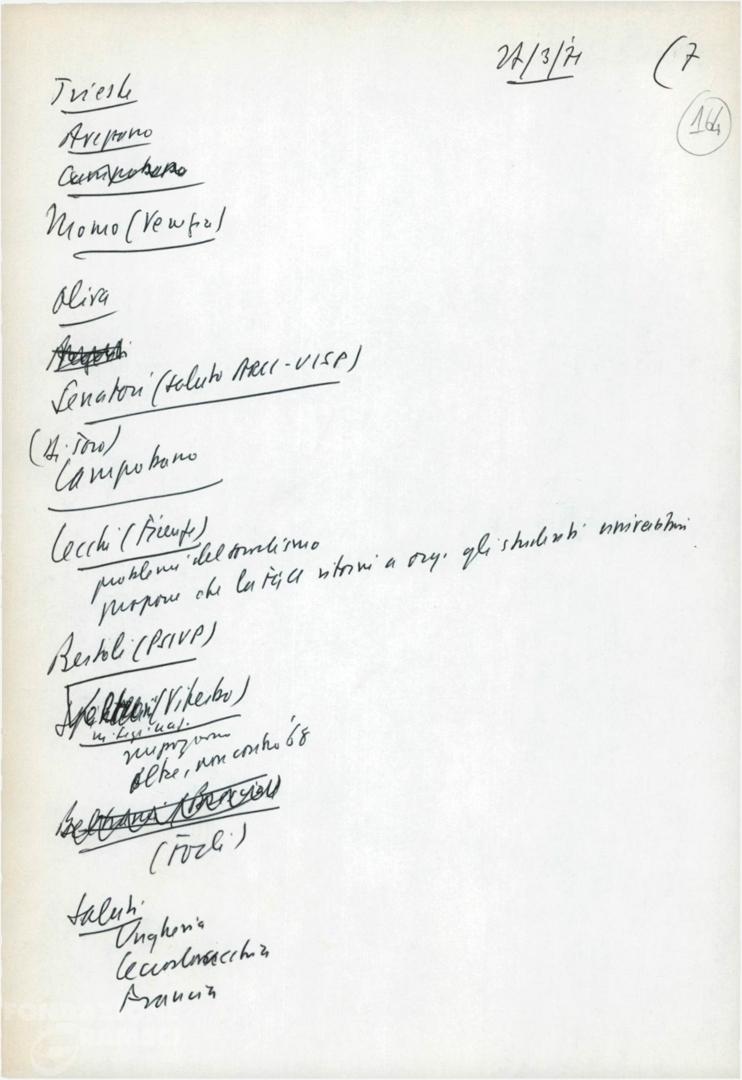 27/3/71 (7
164
Trieste
Avezzano
Campobasso
Momo (Venezia)
Oliva
Senatori (saluto ARCI-UISP)
(di Toro)
Campobasso
Cecchi (Firenze)
problemi del
propone che la FGCI ritorni a org. gli studenti universitari
Bertoli (PSIUP)
(Viterbo)
mezzogiorno
oltre, non contro '68
(Forlì)
Saluti
Ungheria
Cecoslovacchia
Francia
FONDAZIONE
GRAMSCI